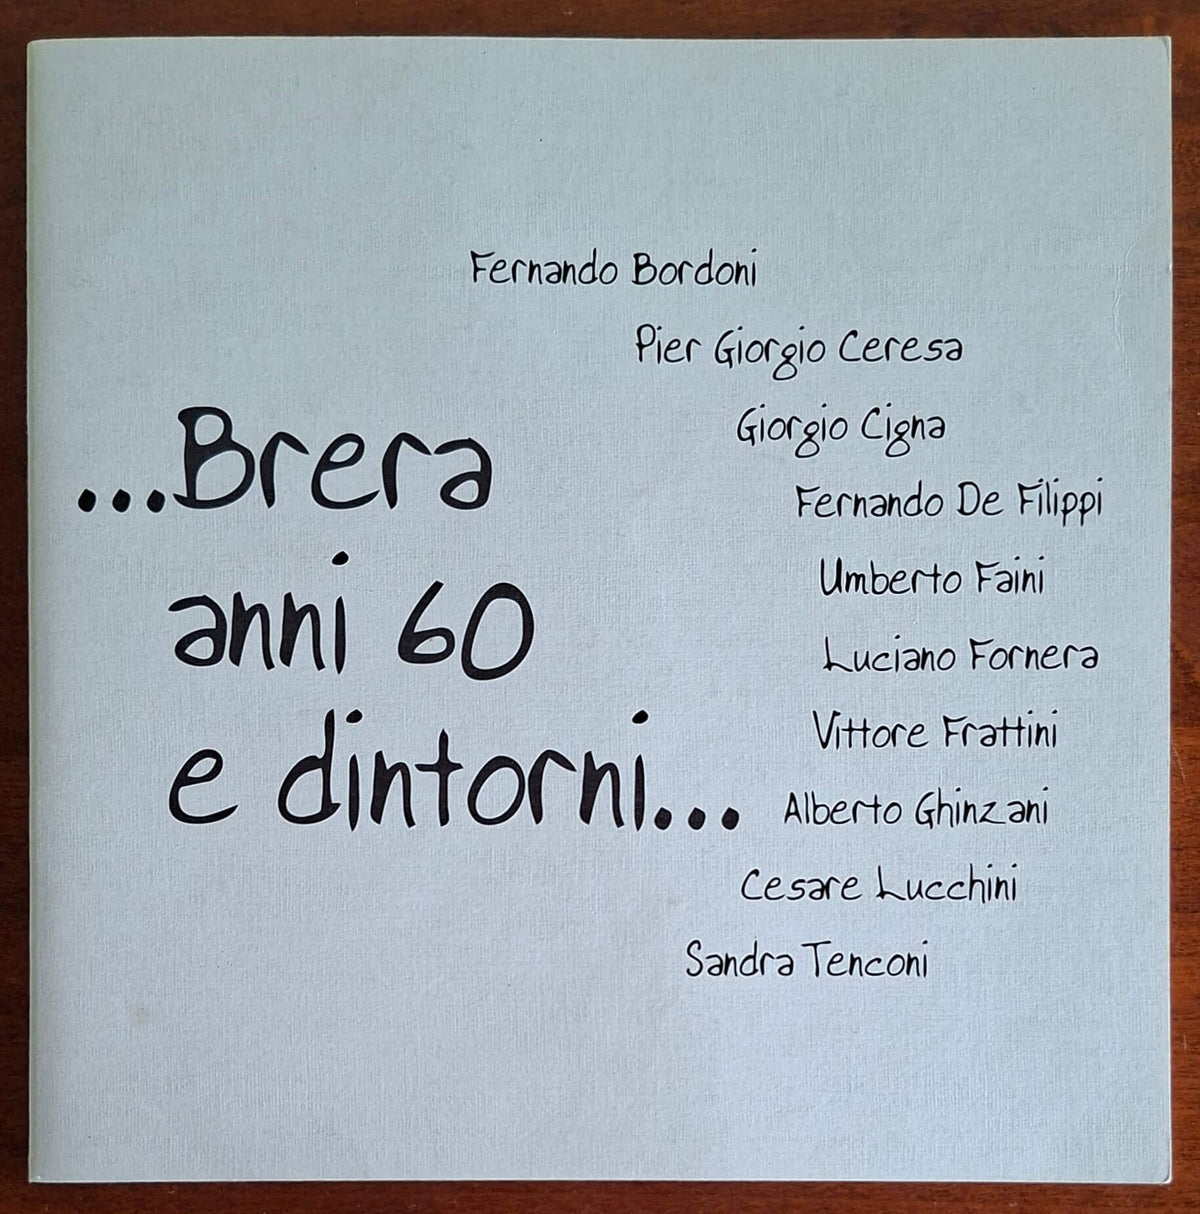 ...Brera
anni 60
e dintorni...
Fernando Bordoni
Pier Giorgio Ceresa
Giorgio Cigna
Fernando De Filippi
Umberto Faini
Luciano Fornera
Vittore Frattini
Alberto Ghinzani
Cesare Lucchini
Sandra Tenconi